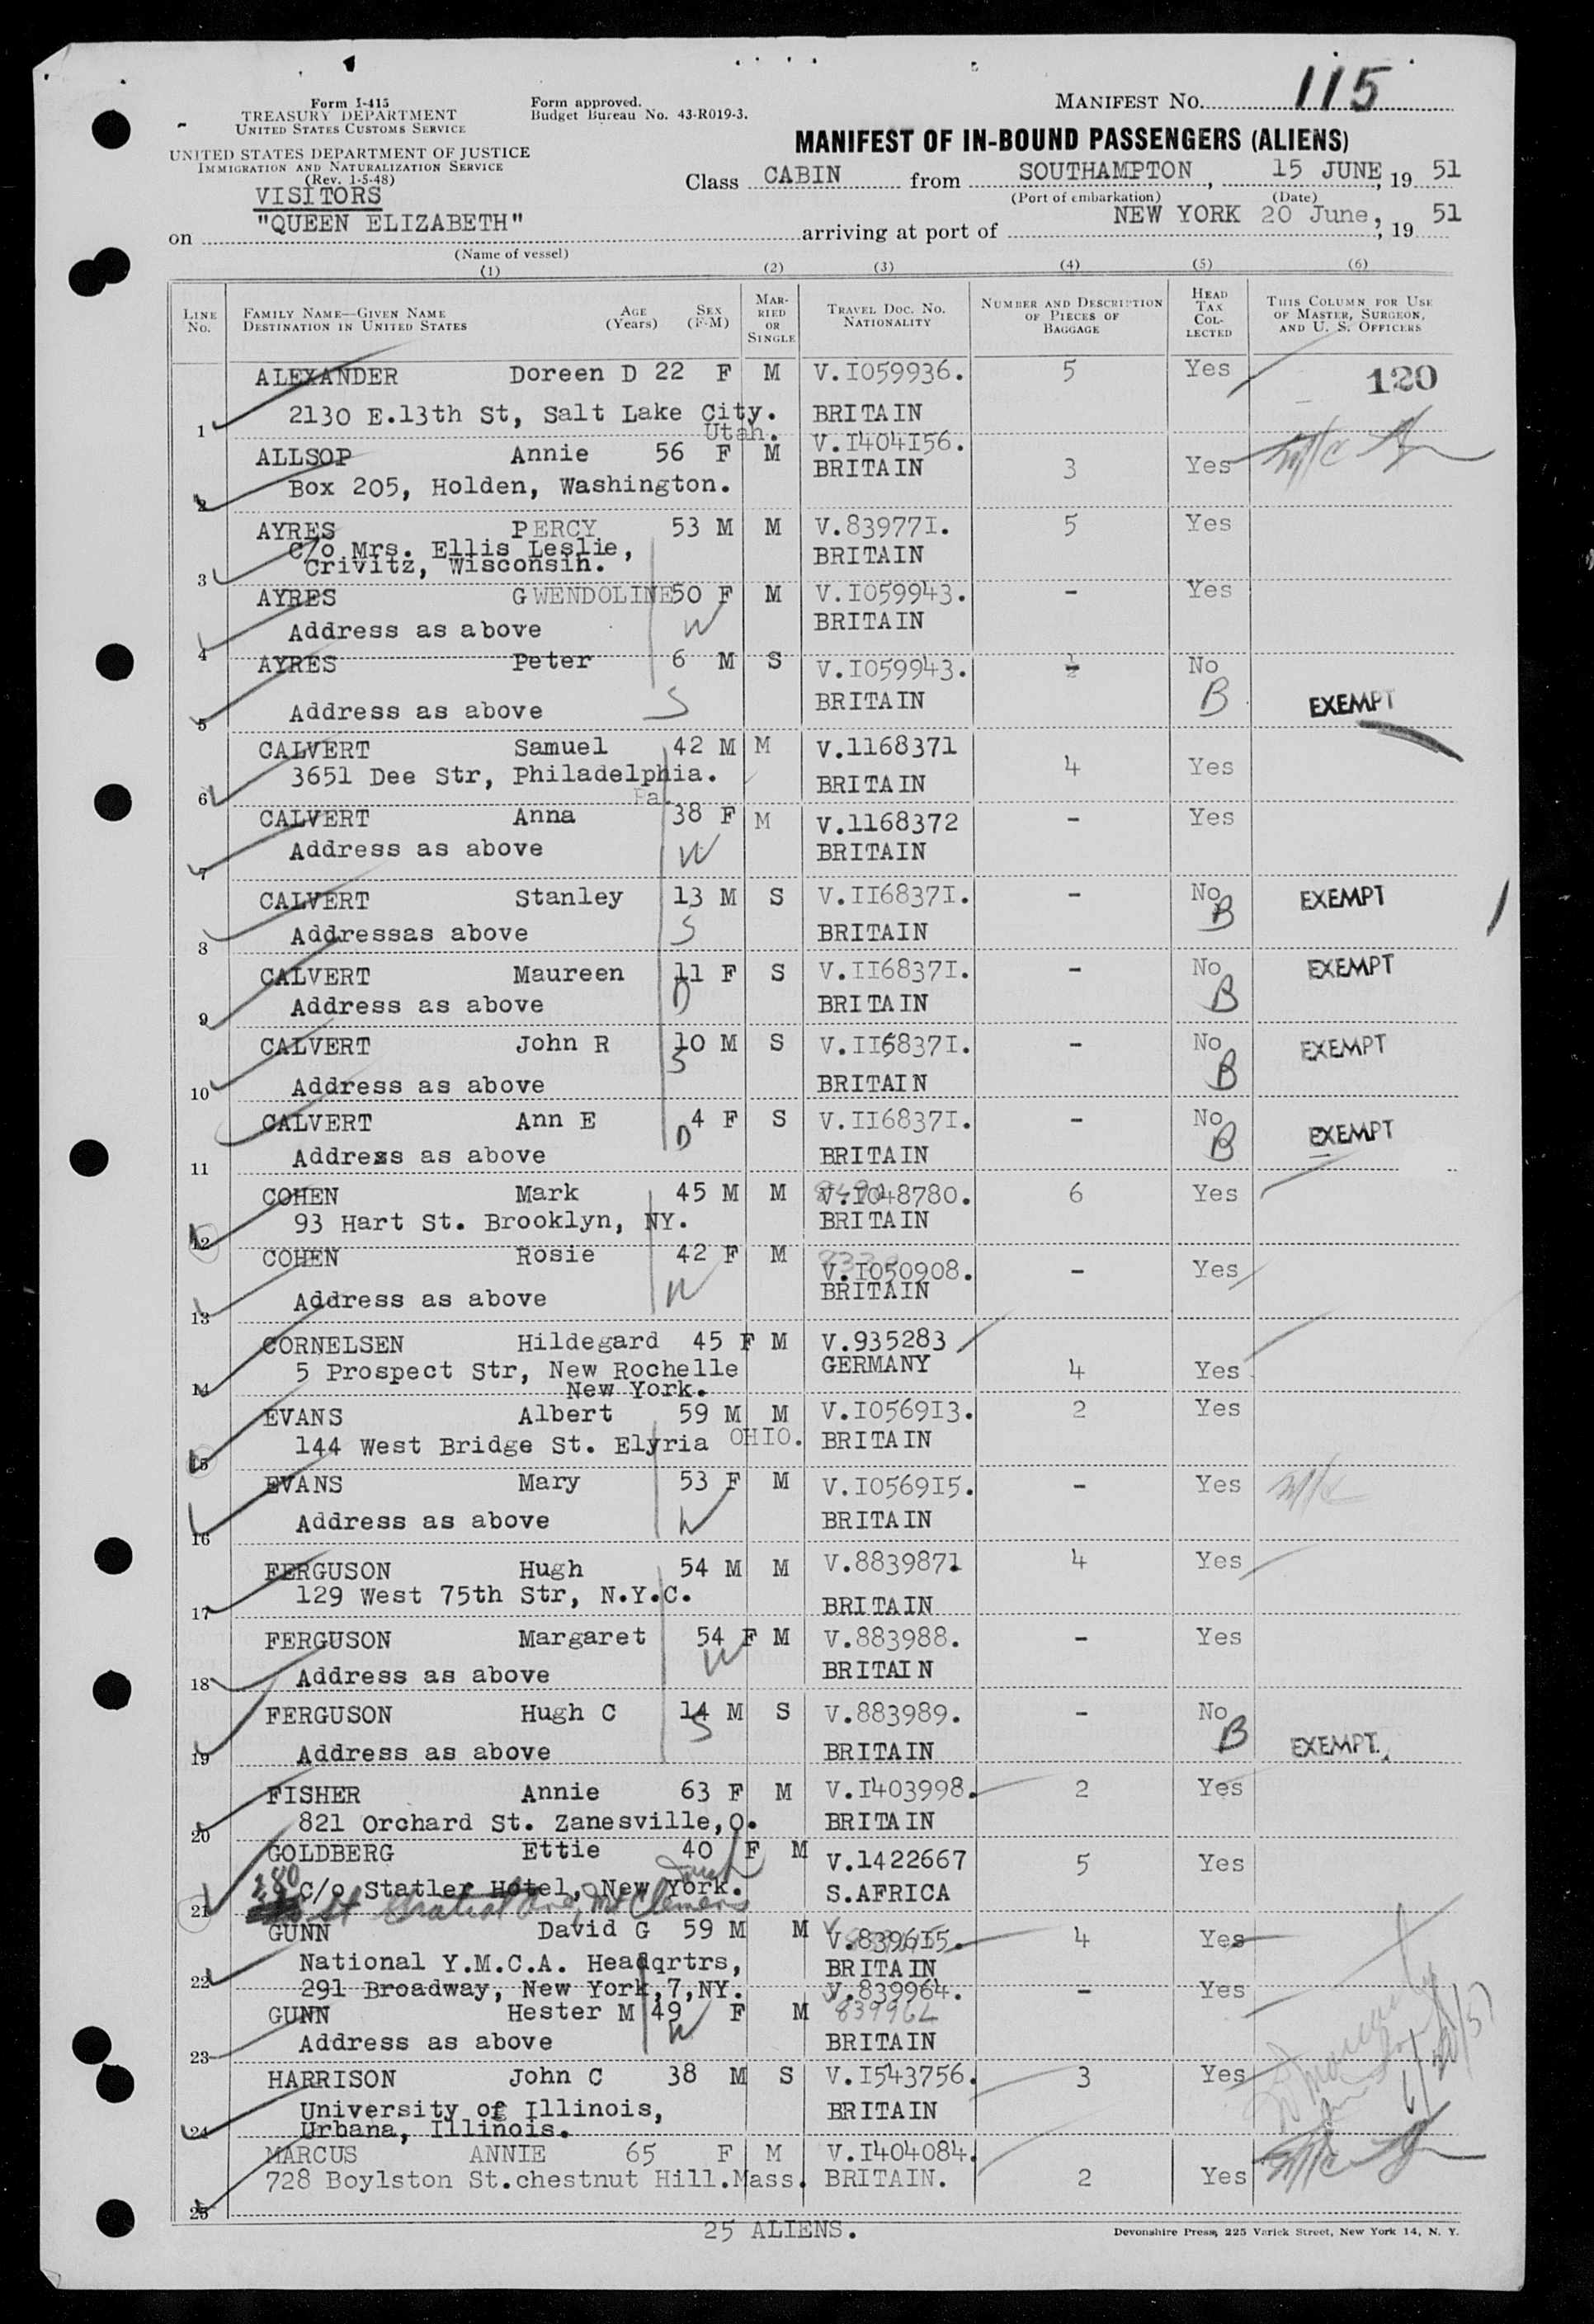 115
Form I-415
TREASURY DEPARTMENT
UNITED STATES CUSTOMS SERVICE
Form approved.
Budget Bureau No. 43-R019-3.
MANIFEST NO.
UNITED STATES DEPARTMENT OF JUSTICE
IMMIGRATION AND NATURALIZATION SERVICE
(Rev. 1-5-48)
MANIFEST OF IN-BOUND PASSENGERS (ALIENS)
VISITORS
Class CABIN from SOUTHAMPTON, 15 JUNE, 19 51
(Port of embarkation) (Date)
on "QUEEN ELIZABETH" arriving at port of NEW YORK 20 June, 19 51
(Name of vessel)
(1) (2) (3) (4) (5) (6)
LINE NO. FAMILY NAME—GIVEN NAME DESTINATION IN UNITED STATES AGE (Years) SEX (F-M) MARRIED OR SINGLE TRAVEL DOC. NO. NATIONALITY NUMBER AND DESCRIPTION OF PIECES OF BAGGAGE HEAD TAX COLLECTED THIS COLUMN FOR USE OF MASTER, SURGEON, AND U. S. OFFICERS
ALEXANDER Doreen D 22 F M V.I059936. 5 Yes 120
1 2130 E.13th St, Salt Lake City. BRITAIN
Utah.
ALLSOP Annie 56 F M V.I404I56. 3 Yes
2 Box 205, Holden, Washington. BRITAIN
AYRES PERCY 53 M M V.83977I. 5 Yes
c/o Mrs. Ellis Leslie, BRITAIN
3 Crivitz, Wisconsin.
AYRES GWENDOLINE 50 F M V.I059943. - Yes
4 Address as above W BRITAIN
AYRES Peter 6 M S V.I059943. No
5 Address as above S BRITAIN B EXEMPT
CALVERT Samuel 42 M M V.1168371 4 Yes
6 3651 Dee Str, Philadelphia. BRITAIN
Pa.
CALVERT Anna 38 F M V.1168372 - Yes
7 Address as above W BRITAIN
CALVERT Stanley 13 M S V.II6837I. - No B EXEMPT
8 Addressas above S BRITAIN
CALVERT Maureen 11 F S V.II6837I. - No B EXEMPT
9 Address as above D BRITAIN
CALVERT John R 10 M S V.II6837I. - No B EXEMPT
10 Address as above S BRITAIN
CALVERT Ann E 4 F S V.II6837I. - No B EXEMPT
11 Address as above D BRITAIN
COHEN Mark 45 M M V.I048780. 6 Yes
12 93 Hart St. Brooklyn, NY. BRITAIN
COHEN Rosie 42 F M V.I050908. - Yes
13 Address as above W BRITAIN
CORNELSEN Hildegard 45 F M V.935283
5 Prospect Str, New Rochelle GERMANY 4 Yes
14 New York.
EVANS Albert 59 M M V.I0569I3. 2 Yes
15 144 West Bridge St. Elyria OHIO. BRITAIN
EVANS Mary 53 F M V.I0569I5. - Yes
16 Address as above W BRITAIN
FERGUSON Hugh 54 M M V.8839871 4 Yes
17 129 West 75th Str, N.Y.C. BRITAIN
FERGUSON Margaret 54 F M V.883988. - Yes
18 Address as above W BRITAIN
FERGUSON Hugh C 14 M S V.883989. - No B
19 Address as above S BRITAIN EXEMPT.
FISHER Annie 63 F M V.I403998. 2 Yes
20 821 Orchard St. Zanesville,O. BRITAIN
GOLDBERG Ettie 40 F M V.1422667 5 Yes
21 c/o Statler Hotel, New York. S.AFRICA
280 Gratiot Ave, Mt Clemens
GUNN David G 59 M M V.8396I5. 4 Yes
National Y.M.C.A. Headqrtrs, BRITAIN
22 291 Broadway, New York,7,NY. V.839964. - Yes
GUNN Hester M 49 F M 839964
23 Address as above W BRITAIN
HARRISON John C 38 M S V.I543756. 3 Yes
University of Illinois, BRITAIN
24 Urbana, Illinois.
MARCUS ANNIE 65 F M V.I404084.
728 Boylston St.chestnut Hill.Mass. BRITAIN. 2 Yes
25
25 ALIENS.
Devonshire Press, 225 Varick Street, New York 14, N. Y.